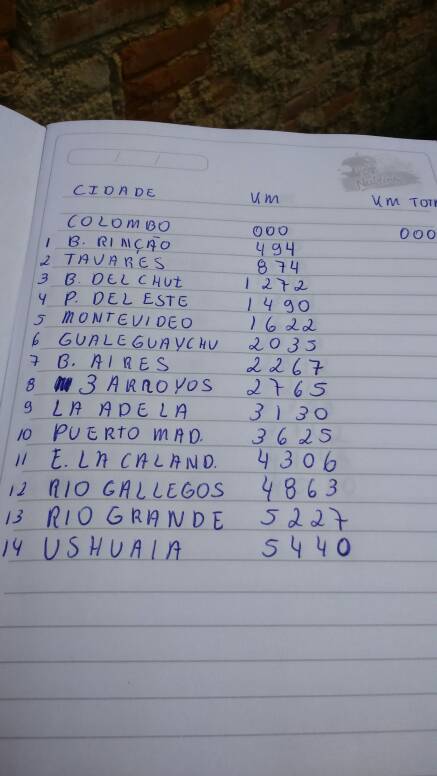 CIDADE KM KM TOT
COLOMBO 000 000
1 B. RINCÃO 494
2 TAVARES 874
3 B. DEL CHUI 1272
4 P. DEL ESTE 1490
5 MONTEVIDEO 1622
6 GUALEGUAYCHU 2035
7 B. AIRES 2267
8 3 ARROYOS 2765
9 LA ADELA 3130
10 PUERTO MAD. 3625
11 E. LA CALAND. 4306
12 RIO GALLEGOS 4863
13 RIO GRANDE 5227
14 USHUAIA 5440